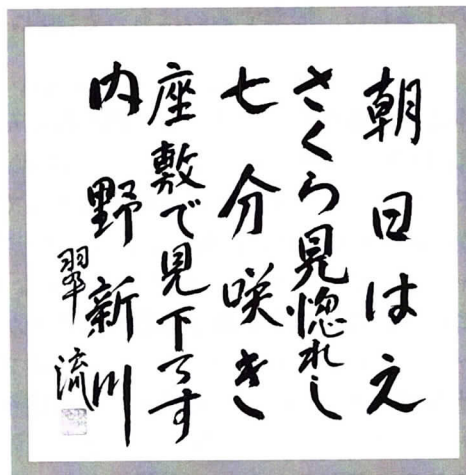 朝日はえ
さくら見惚れし
七分咲き
座敷で見下ろす
内野新川
翠流